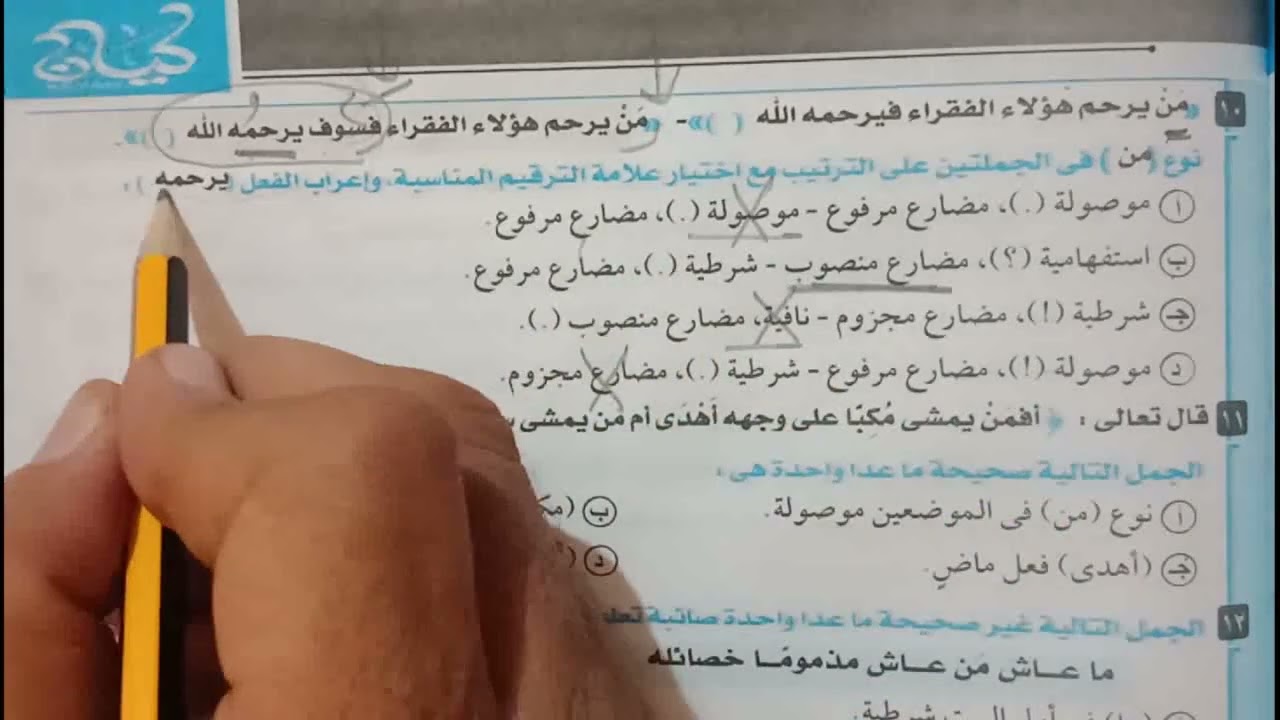 كيان
١٠ «مَنْ يرحم هؤلاء الفقراء فيرحمه الله ( )» - «مَنْ يرحم هؤلاء الفقراء فسوف يرحمه الله ( )».
نوع (من) فى الجملتين على الترتيب مع اختيار علامة الترقيم المناسبة، وإعراب الفعل (يرحمه) :
أ موصولة (.)، مضارع مرفوع - موصولة (.)، مضارع مرفوع.
ب استفهامية (؟)، مضارع منصوب - شرطية (.)، مضارع مرفوع.
جـ شرطية (!)، مضارع مجزوم - نافية، مضارع منصوب (.).
د موصولة (!)، مضارع مرفوع - شرطية (.)، مضارع مجزوم.
١١ قال تعالى : ﴿ أفمَنْ يمشى مُكِبًا على وجهه أَهْدَى أم مَن يمشى
الجمل التالية صحيحة ما عدا واحدة هى :
أ نوع (من) فى الموضعين موصولة.
ب
جـ (أهدى) فعل ماضٍ.
د
١٢ الجمل التالية غير صحيحة ما عدا واحدة صائبة
ما عـاش مَن عـاش مذمومًـا خصائله